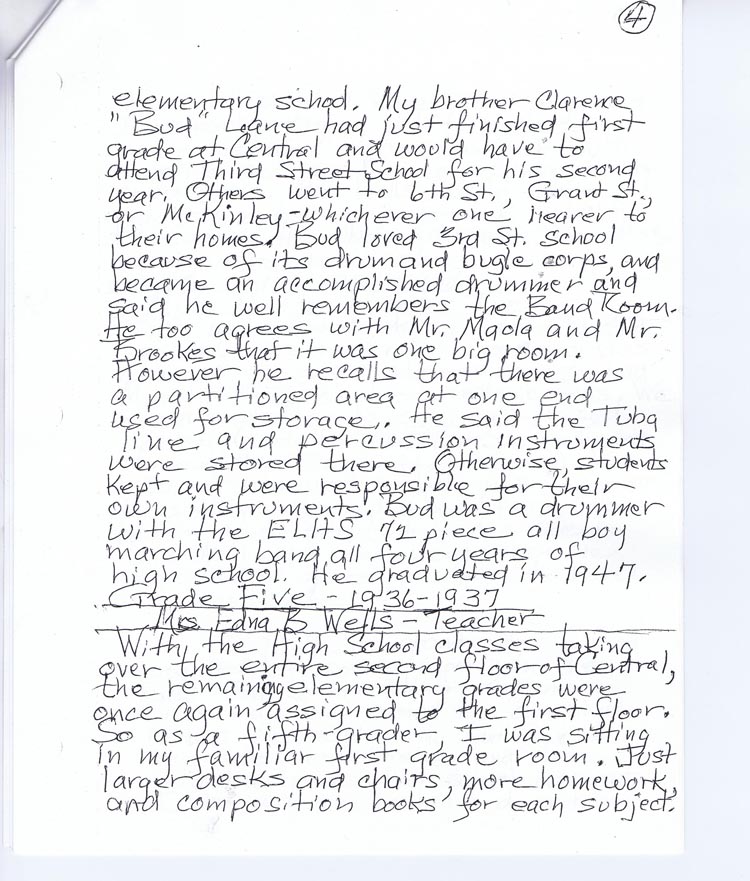 4
elementary school. My brother Clarence
"Bud" Lane had just finished first
grade at Central and would have to
attend Third Street School for his second
year. Others went to 6th St., Grant St.,
or McKinley-whichever one nearer to
their homes. Bud loved 3rd St. School
because of its drum and bugle corps, and
became an accomplished drummer and
said he well remembers the Band Room.
He too agrees with Mr. Magla and Mr.
Brookes that it was one big room.
However he recalls that there was
a partitioned area at one end
used for storage. He said the Tuba
line and percussion instruments
were stored there. Otherwise, students
kept and were responsible for their
own instruments. Bud was a drummer
with the ELHS 72 piece all boy
marching band, all four years of
high school. He graduated in 1947.
Grade Five - 1936-1937
Mrs. Edna B Wells - Teacher
With the High School classes taking
over the entire second floor of Central,
the remaining elementary grades were
once again assigned to the first floor.
So as a fifth-grader, I was sitting
in my familiar first grade room. Just
larger desks and chairs, more homework,
and composition books for each subject.